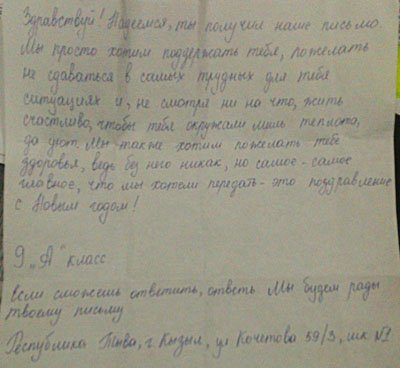 Здравствуй! Надеемся, ты получил наше письмо.
Мы просто хотим поддержать тебя, пожелать
не сдаваться в самых трудных для тебя
ситуациях и, не смотря ни на что, жить
счастливо, чтобы тебя окружали лишь теплота,
да уют. Мы также хотим пожелать тебе
здоровья, ведь без него никак, но самое-самое
главное, что мы хотели передать - это поздравление
с Новым годом!
9 „А" класс
Если сможешь ответить, ответь. Мы будем рады
твоему письму
Республика Тыва, г. Кызыл, ул Кочетова 59/3, шк №1